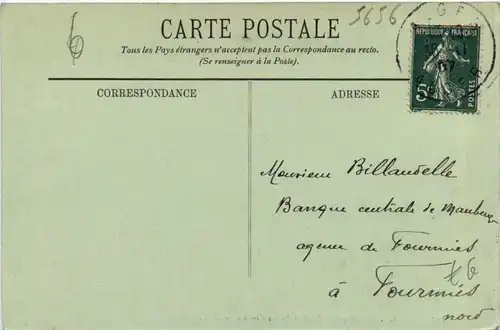 5656
6
CARTE POSTALE
Tous les Pays étrangers n'acceptent pas la Correspondance au recto.
(Se renseigner à la Poste).
CORRESPONDANCE
ADRESSE
REPUBLIQUE FRANÇAISE
5c
POSTES
Monsieur Billaudelle
Banque centrale de Maubeuge
agence de Fourmies
à Fourmies
nord